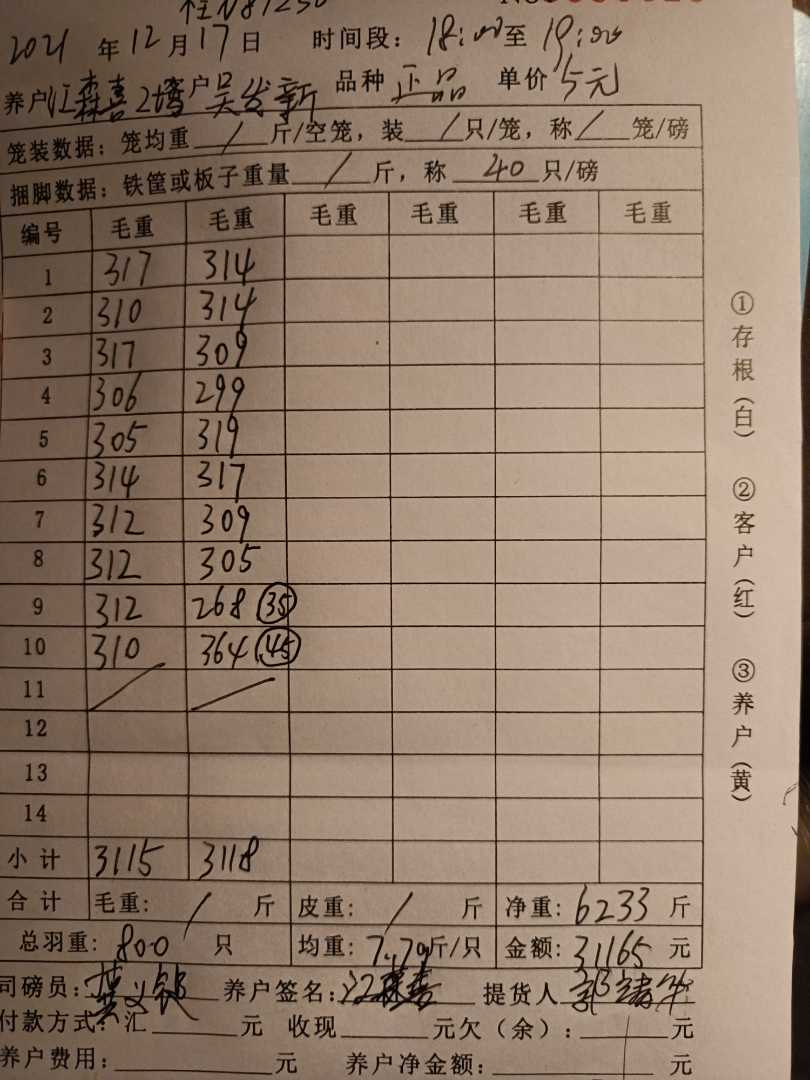 桂N81250
2021 年 12 月 17 日 时间段: 18:00 至 19:00
养户 江森喜 2塆 户 吴发新 品种 正品 单价 5元
笼装数据: 笼均重 / 斤/空笼, 装 / 只/笼, 称 / 笼/磅
捆脚数据: 铁筐或板子重量 / 斤, 称 40 只/磅
编号 毛重 毛重 毛重 毛重 毛重 毛重
1 317 314
2 310 314
3 317 309
4 306 299
5 305 319
6 314 317
7 312 309
8 312 305
9 312 268 (35)
10 310 364 (45)
11 / /
12
13
14
小计 3115 3118
合计 毛重: / 斤 皮重: / 斤 净重: 6233 斤
总羽重: 800 只 均重: 7.79 斤/只 金额: 31165 元
司磅员: 养户签名: 江森喜 提货人
付款方式: 汇 元 收现 元欠（余）: 元
养户费用: 元 养户净金额: 元
①存根（白） ②客户（红） ③养户（黄）